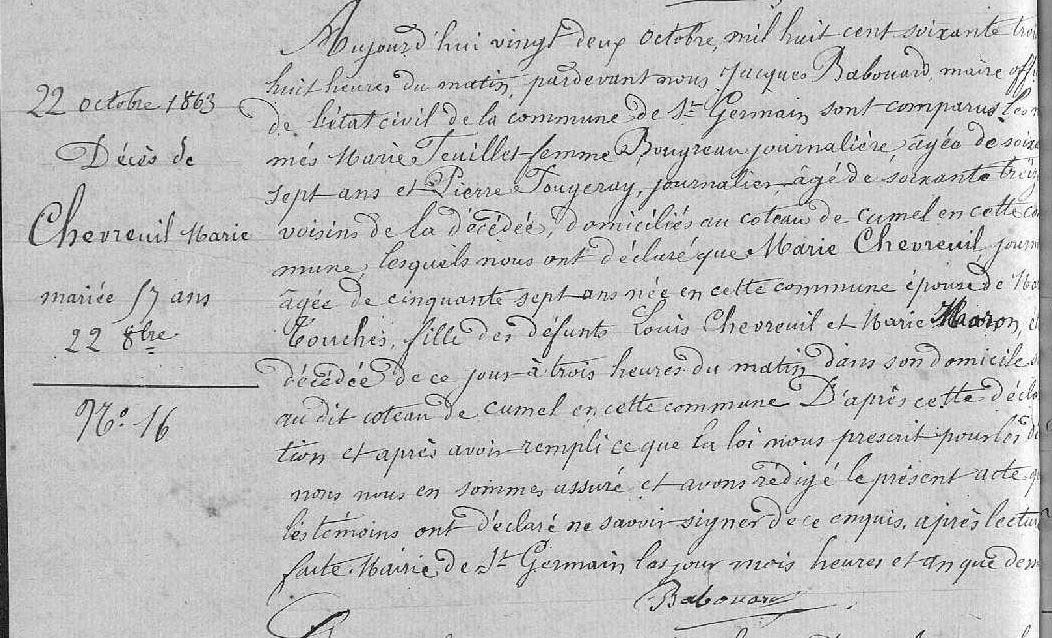 22 octobre 1863
Décès de
Chevreuil Marie
mariée 57 ans
22 8bre
N° 16
Aujourd'hui vingt deux octobre, mil huit cent soixante trois
huit heures du matin, pardevant nous Jacques Babouard, maire offi
de l'état civil de la commune de St Germain sont comparus Les
més Marie Feuillet femme Bougreau journalière, âgée de soix
sept ans et Pierre Fougeray, journalier âgé de soixante treiz
voisins de la décédée, domiciliés au coteau de cumel en cette co
mune, lesquels nous ont déclaré que Marie Chevreuil journ
âgée de cinquante sept ans née en cette commune épouse de
Touches, fille des défunts Louis Chevreuil et Marie
décédée de ce jour à trois heures du matin dans son domicile
au dit coteau de cumel en cette commune D'après cette décla
tion et après avoir rempli ce que la loi nous prescrit pour les
nous nous en sommes assuré et avons rédigé le présent acte q
les témoins ont déclaré ne savoir signer de ce enquis, après lectur
faite. Mairie de St Germain les jour mois heures et an que de
Babouard